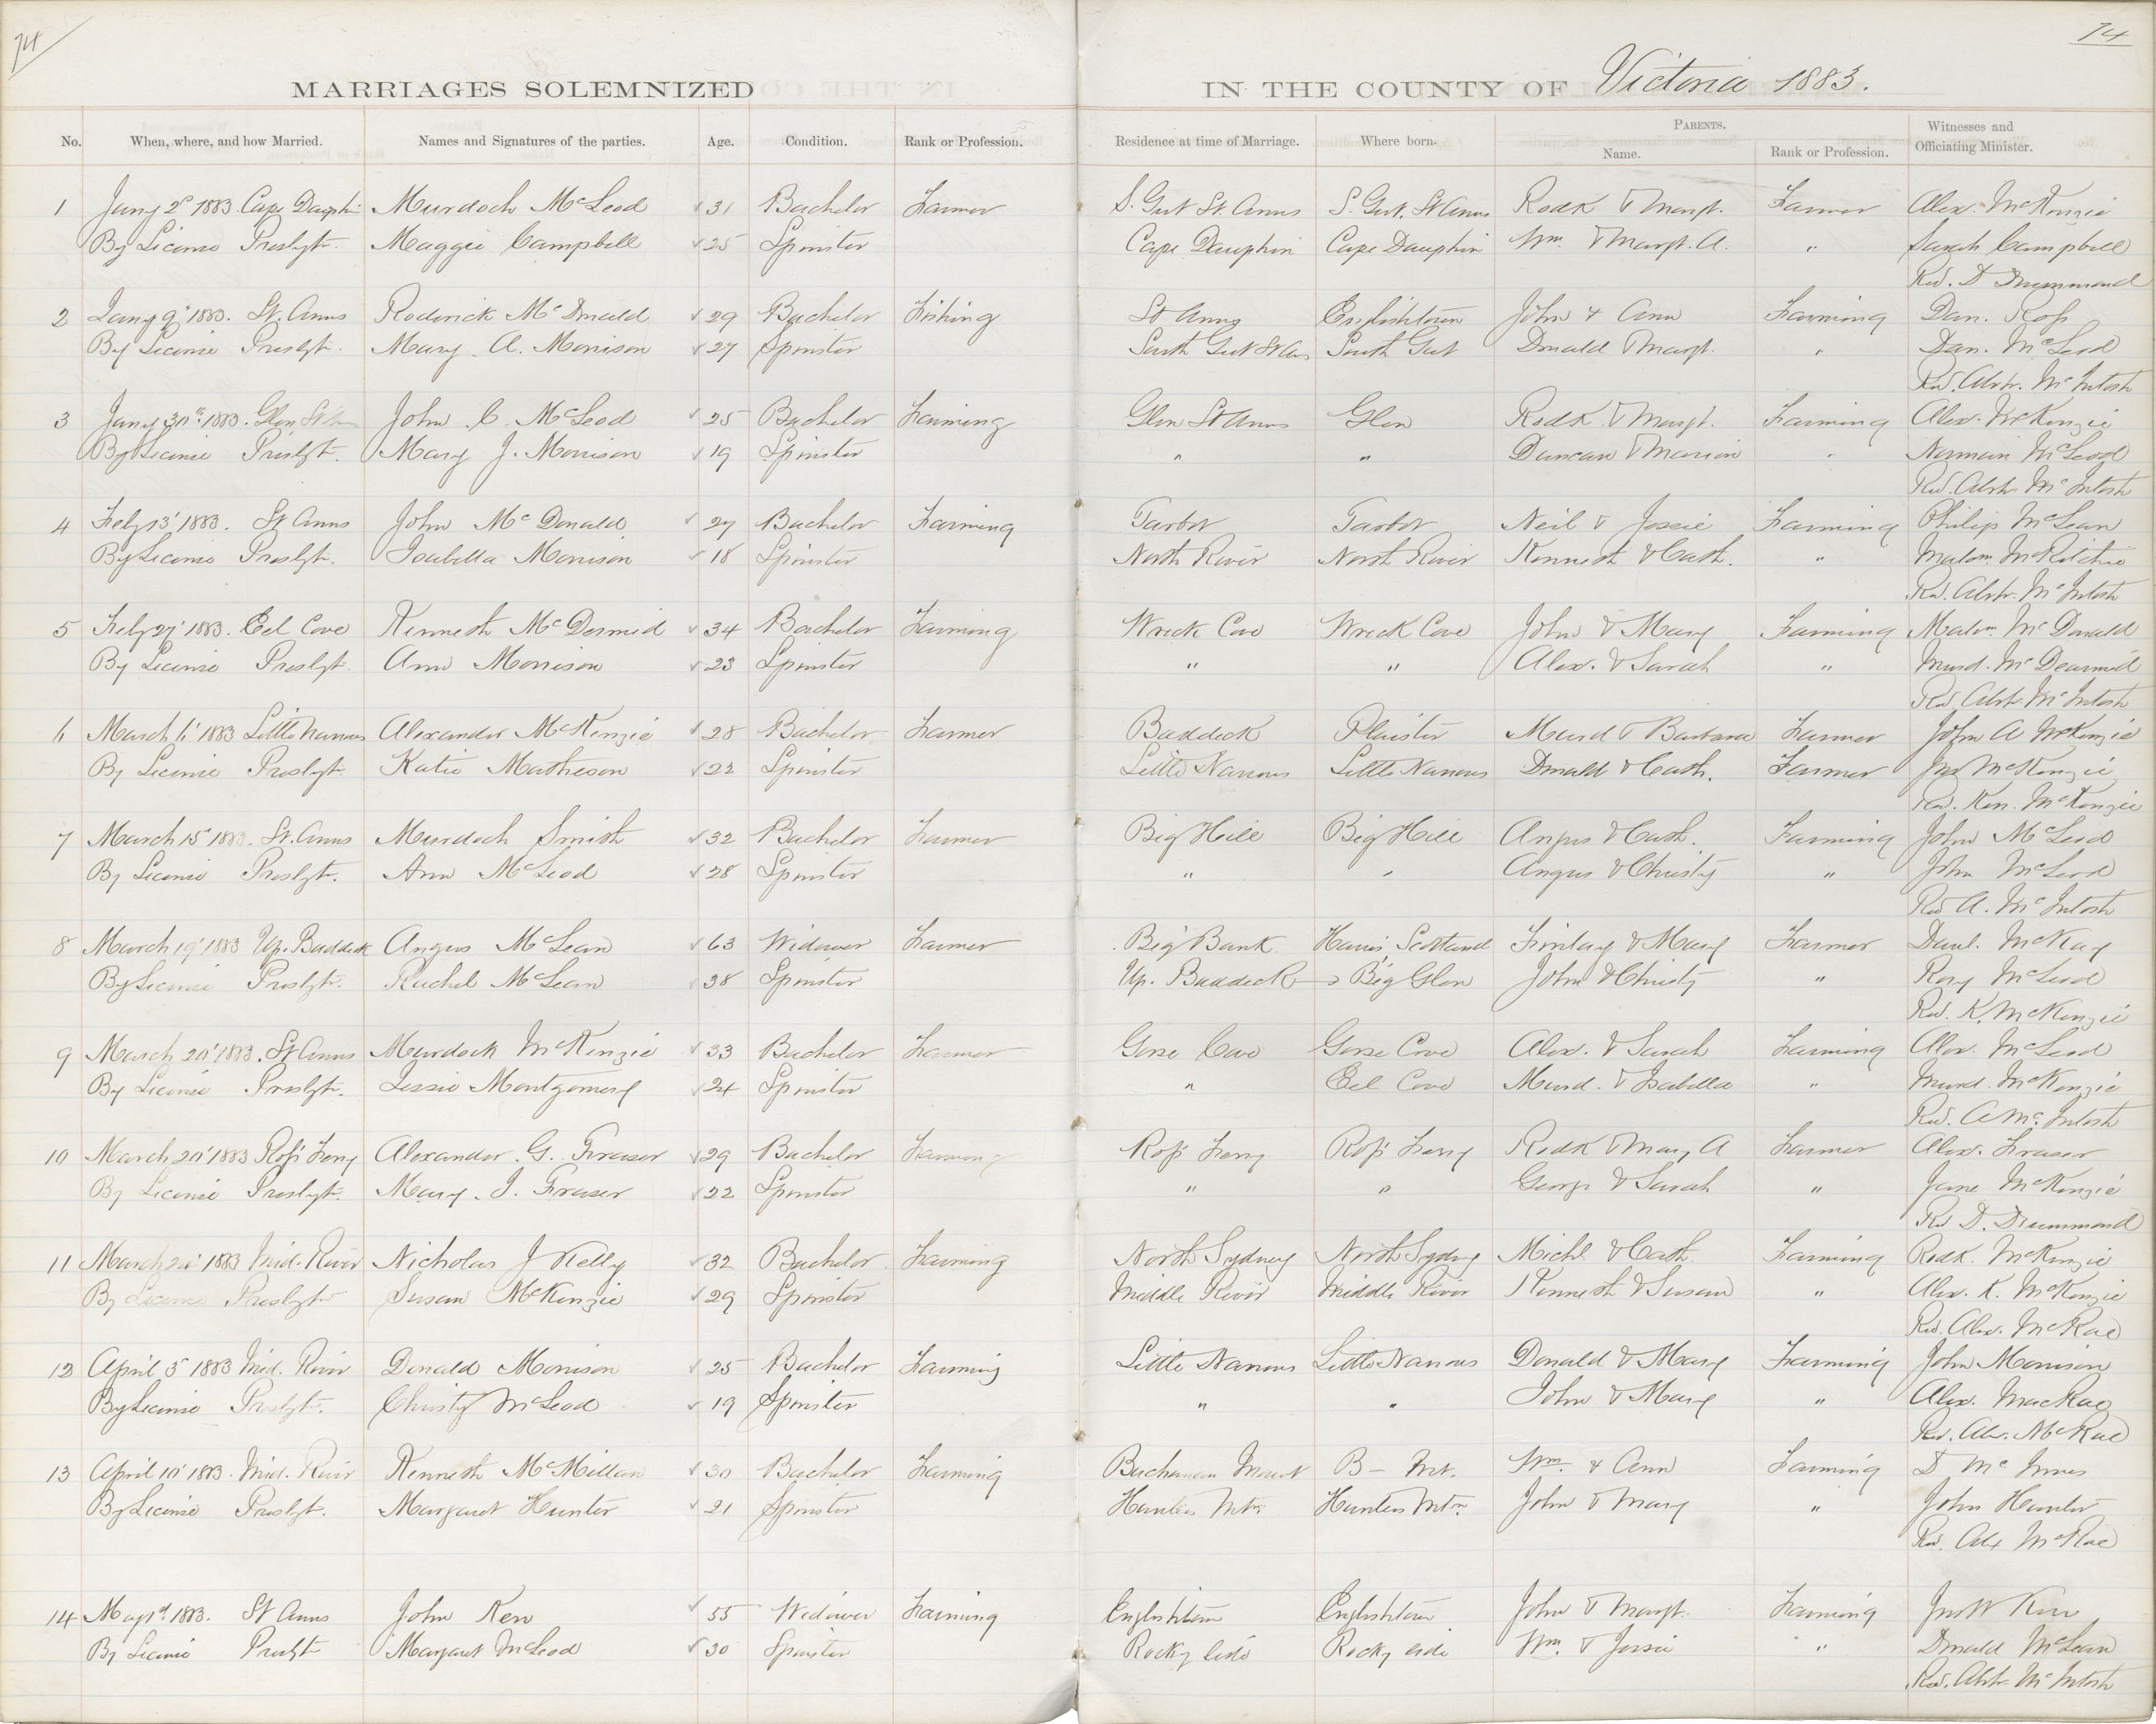 74
74
MARRIAGES SOLEMNIZED IN THE COUNTY OF Victoria 1883.
No. When, where, and how Married. Names and Signatures of the parties. Age. Condition. Rank or Profession. Residence at time of Marriage. Where born. PARENTS. Name. Rank or Profession. Witnesses and Officiating Minister.
1 Jany 2d 1883. Cape Dauphin Murdoch McLeod 31 Bachelor Farmer S. Gut St. Anns S. Gut. St Anns Rodk & Margt. Farmer Alex. McKenzie
By License Presbyt. Maggie Campbell 25 Spinster Cape Dauphin Cape Dauphin Wm. & Margt. A. " Sarah Campbell
Rev. D Drummond
2 Jany 9' 1883. St. Anns Roderick McDonald 29 Bachelor Fishing St Anns Englishtown John & Ann Farming Dan. Ross
By License Presbyt. Mary A. Morrison 27 Spinster South Gut St Ans South Gut Donald & Margt. " Dan. McLeod
Rev. Alxr. McIntosh
3 Jany 30th 1883. Glen St Ans John C. McLeod 25 Bachelor Farming Glen St Anns Glen Rodk & Margt. Farming Alex. McKenzie
By License Presbyt. Mary J. Morrison 19 Spinster " " Duncan & Marion " Norman McLeod
Rev. Alxr. McIntosh
4 Feby 13' 1883. St Anns John McDonald 27 Bachelor Farming Tarbot Tarbot Neil & Jessie Farming Philip McLean
By License Presbyt. Isabella Morrison 18 Spinster North River North River Kenneth & Cath. " Malcm. McRitchie
Rev. Alxr. McIntosh
5 Feby 27' 1883. Eel Cove Kenneth McDermid 34 Bachelor Farming Wreck Cove Wreck Cove John & Mary Farming Malcm. McDonald
By License Presbyt. Ann Morrison 23 Spinster " " Alex. & Sarah " Murd. McDearmid
Rev. Alxr. McIntosh
6 March 6' 1883 Little Narrows Alexander McKenzie 28 Bachelor Farmer Baddeck Plaister Murd & Barbara Farmer John A McKenzie
By License Presbyt. Katie Matheson 22 Spinster Little Narrows Little Narrows Donald & Cath. Farmer Jno McKenzie
Rev. Ken. McKenzie
7 March 15' 1883. St. Anns Murdoch Smith 32 Bachelor Farmer Big Hill Big Hill Angus & Cath. Farming John McLeod
By License Presbyt. Ann McLeod 28 Spinster " " Angus & Christy " John McLeod
Rev A. McIntosh
8 March 19' 1883 Up. Baddeck Angus McLean 63 Widower Farmer Big Bank Harris, Scotland Finlay & Mary Farmer Danl. McKay
By License Presbyt. Rachel McLean 38 Spinster Up. Baddeck Big Glen John & Christy " Rory McLeod
Rev. K. McKenzie
9 March 20' 1883. St Anns Murdock McKenzie 33 Bachelor Farmer Gose Cove Gose Cove Alex. & Sarah Farming Alex. McLeod
By License Presbyt. Jessie Montgomery 24 Spinster " Eel Cove Murd. & Isabella " Murd. McKenzie
Rev. A McIntosh
10 March 20' 1883 Ross Ferry Alexander G. Fraser 29 Bachelor Farming Ross Ferry Ross Ferry Rodk & Mary A Farmer Alex. Fraser
By License Presbyt. Mary J. Fraser 22 Spinster " " George & Sarah " Jane McKenzie
Rev D. Drummond
11 March 20' 1883 Mid. River Nicholas J Kelly 32 Bachelor Farming North Sydney North Sydney Michl. & Cath Farming Rodk. McKenzie
By License Presbyt Susan McKenzie 29 Spinster Middle River Middle River Kenneth & Susan " Alex. K. McKenzie
Rev. Alex. McRae
12 April 3' 1883 Mid. River Donald Morrison 25 Bachelor Farming Little Narrows Little Narrows Donald & Mary Farming John Morrison
By License Presbyt. Christy McLeod 19 Spinster " " John & Mary " Alex. MacRae
Rev. Alex. McRae
13 April 10' 1883. Mid. River Kenneth McMillan 30 Bachelor Farming Buchanan Mount B- Mt. Wm. & Ann Farming D McInnes
By License Presbyt. Margaret Hunter 21 Spinster Hunters Mtn. Hunters Mtn. John & Mary " John Hunter
Rev. Alx McRae
14 May 1st 1883. St Anns John Kerr 55 Widower Farming Englishtown Englishtown John & Margt. Farming Jno W Kerr
By License Presbyt Margaret McLeod 30 Spinster Rocky side Rocky side Wm. & Jessie " Donald McLean
Rev. Alxr. McIntosh